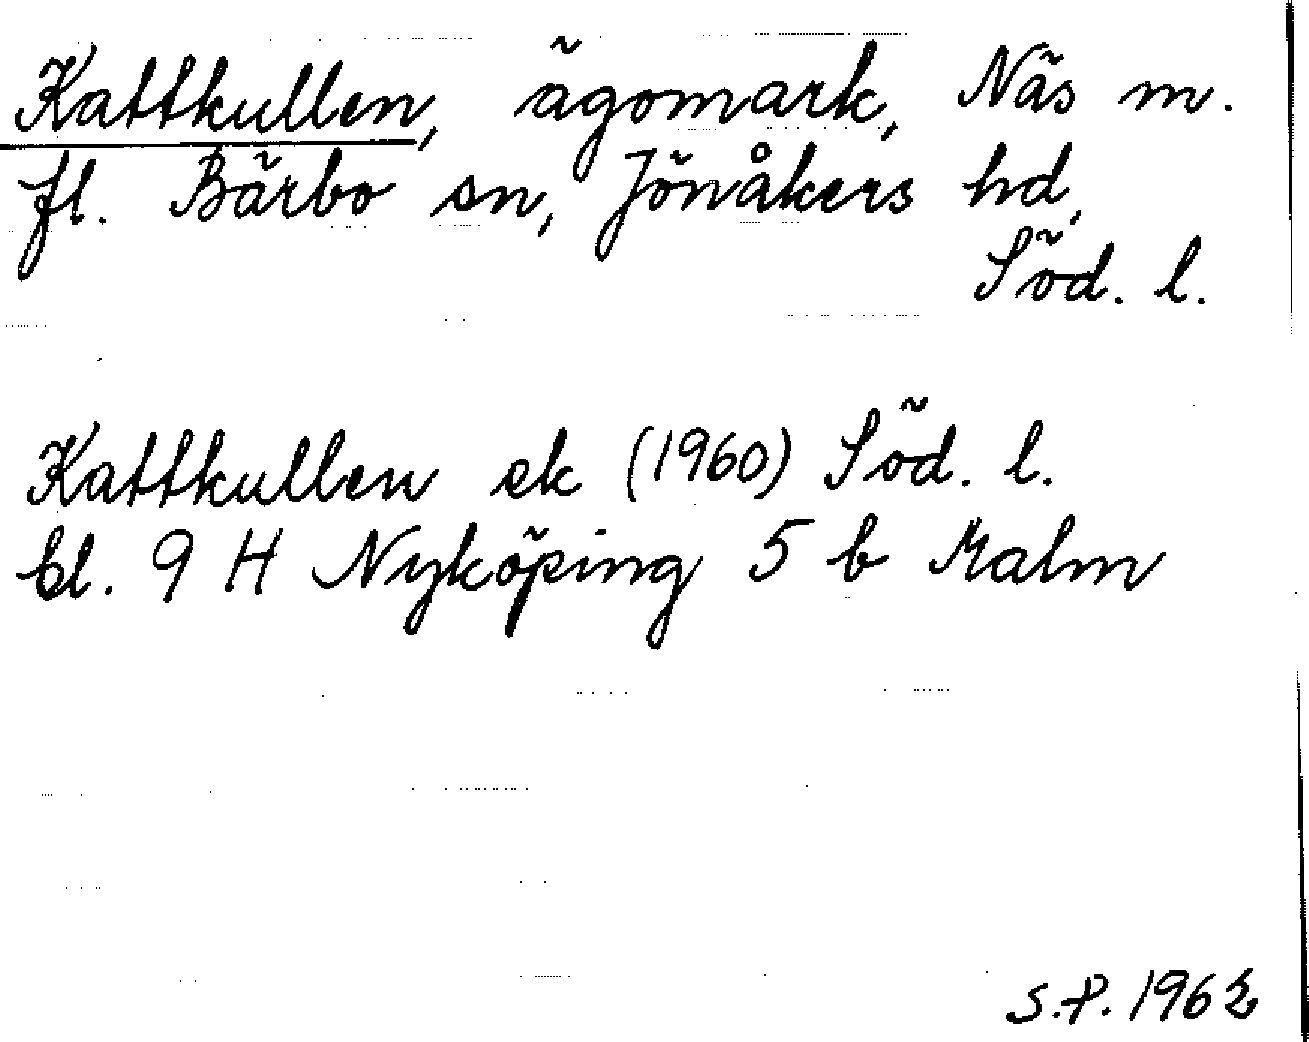 Kattkullen, ägomark, Näs m.
fl. Bärbo sn, Jönåkers hd,
Söd. l.
Kattkullen ek (1960) Söd. l.
bl. 9 H Nyköping 5 b Malm
S.P. 1962